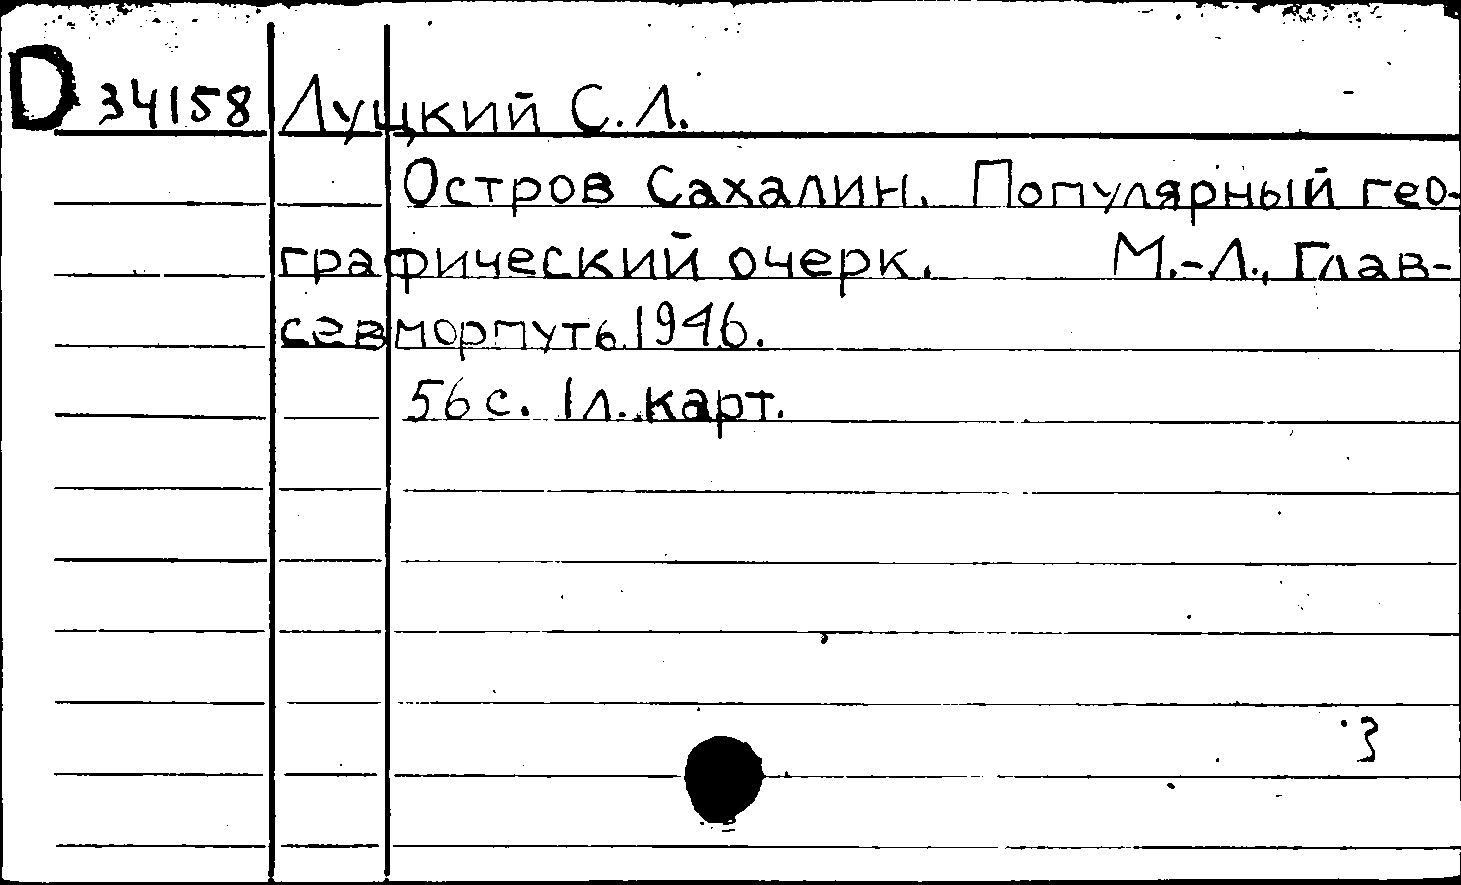 D 34158 Луцкий С.Л.
Остров Сахалин. Популярный гео-
графический очерк. М.-Л., Глав-
севморпуть.1946.
56 с. 1 л. карт.
3